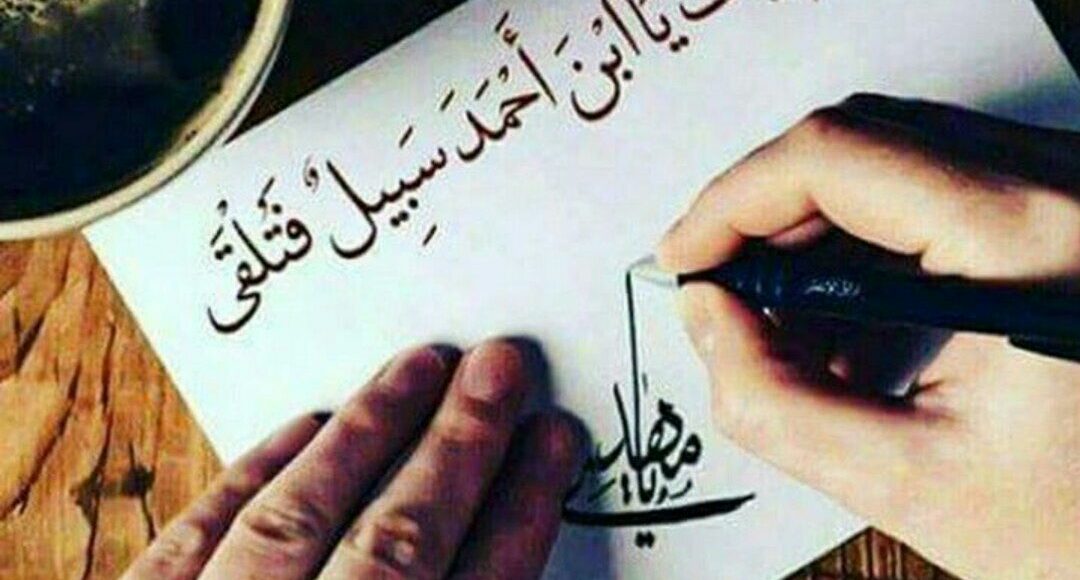 يَا ابْنَ أَحْمَدَ سَبِيلٌ فَتُلْقَى
يا مهدي